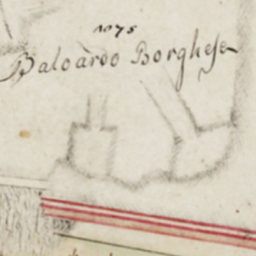 1075
Baloardo Borghese